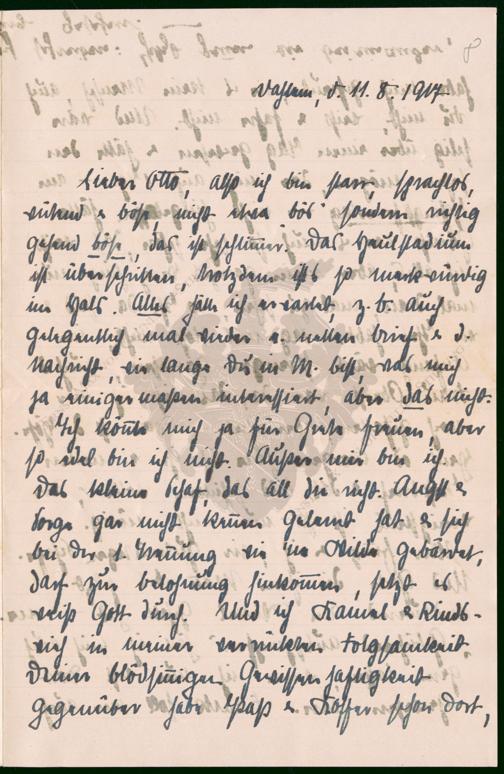 Dahlem, d. 11.8.1917
Lieber Otto, also ich bin starr, sprachlos,
wütend & böse, nicht etwa bös' sondern richtig
gehend böse, das ist schlimmer. Das Heulstadium
ist überschritten, trotzdem ists so merkwürdig
im Hals. Alles hätte ich erwartet, z. B. auch
gelegentlich mal wieder e. netten Brief & d.
Nachricht, wie lange Du in M. bist, was mich
ja einigermaßen interessiert, aber das nicht.
Ich könnte mich ja für Grete freuen, aber
so edel bin ich nicht. Außer mir bin ich.
Das kleine Schaf, das all die nicht Angst &
Sorge gar nicht kennen gelernt hat & sich
bei der 1. Trennung wie 'ne Wilde gebärdet,
darf zur Belohnung hinkommen, setzt es
weiß Gott durch. Und ich Kamel & Rinds-
vieh in meiner verrückten Folgsamkeit
Deiner blödsinnigen Gewissenhaftigkeit
gegenüber habe Paß & Koffer schon dort,